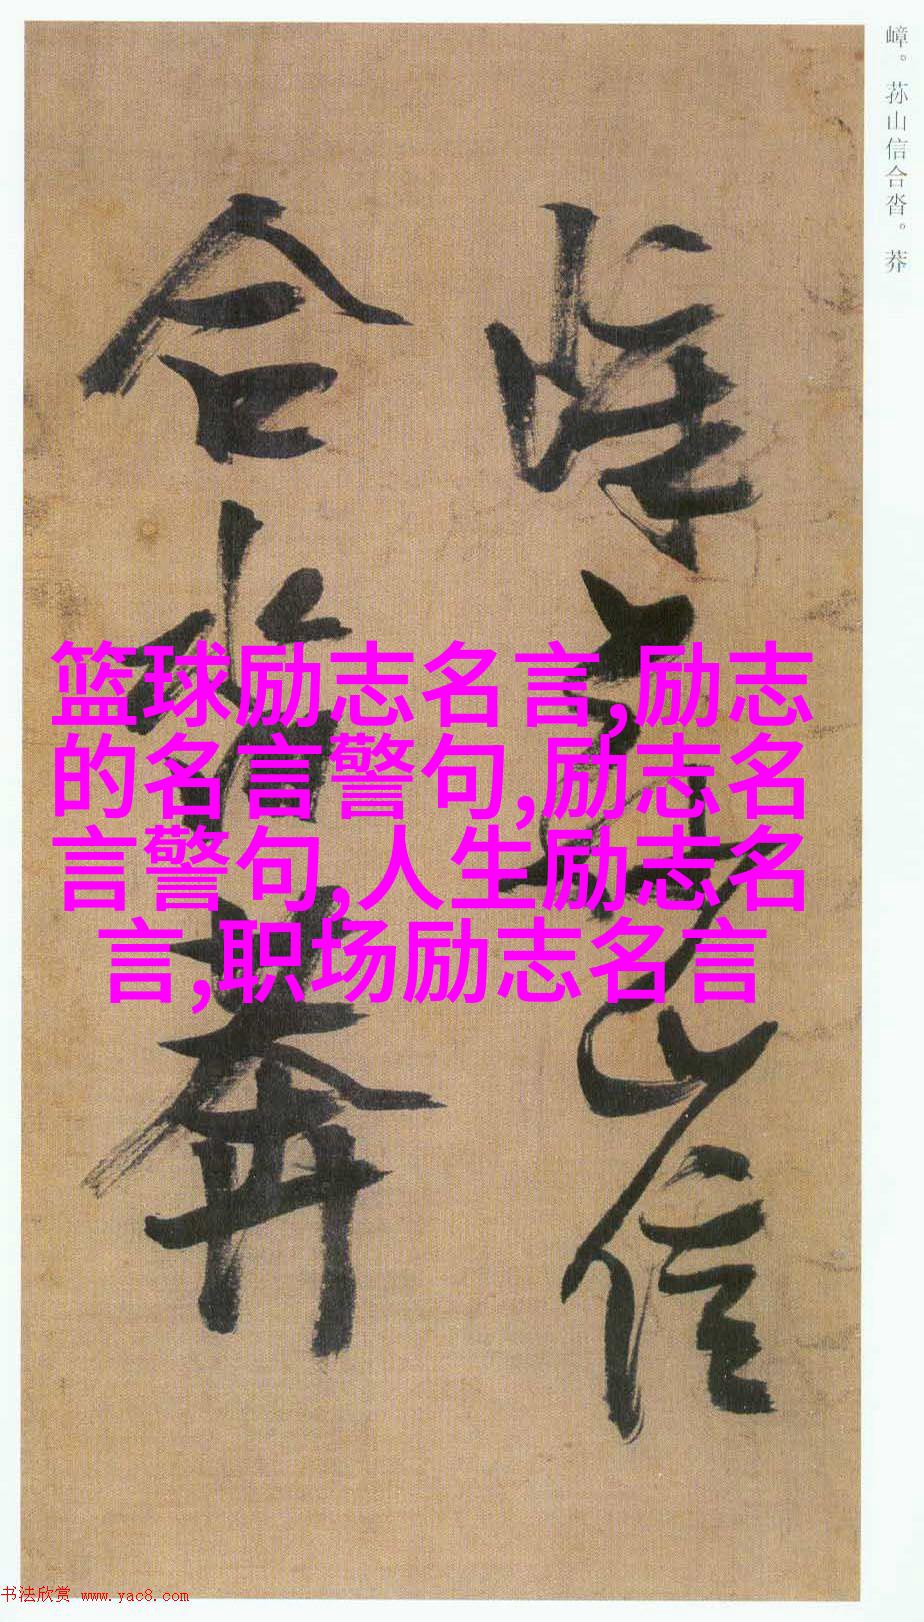 嶂。荪山信合沓。莽
嶂荪山信
合沓莽
篮球励志名言,励志
的名言警句,励志名
言警句,人生励志名
言,职场励志名言
书法欣赏 www.yac8.com